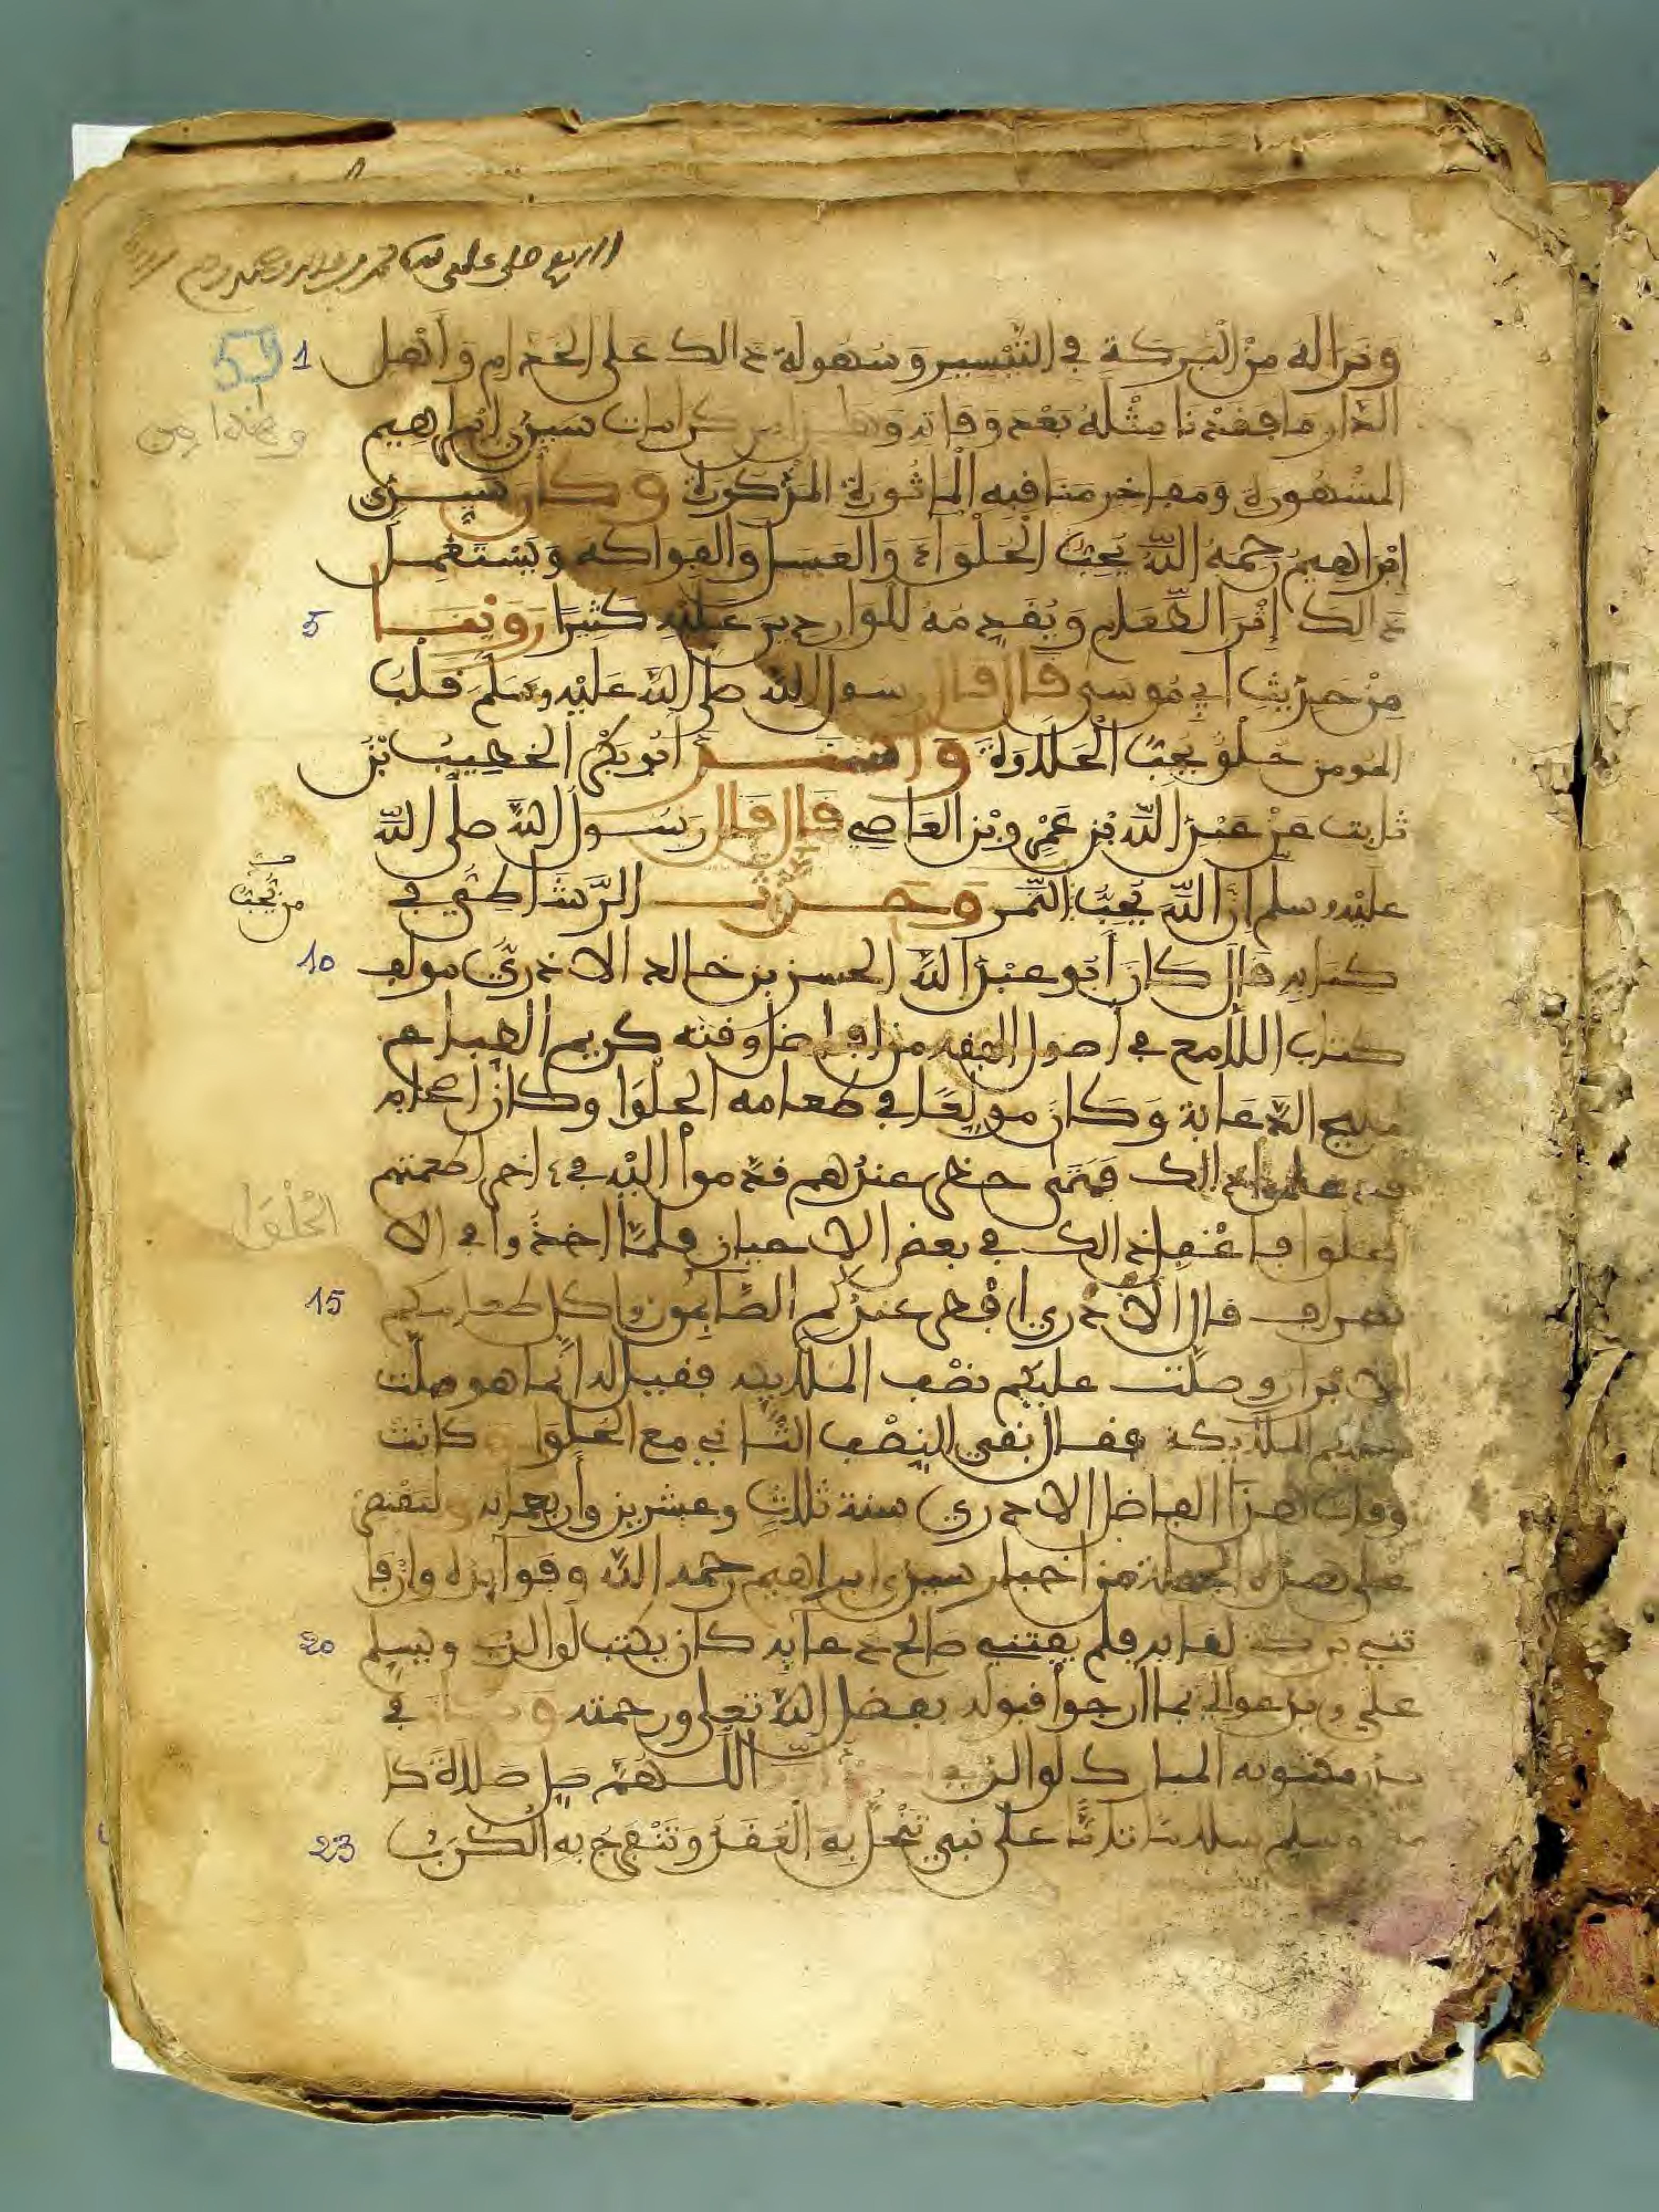 ونرا له من البركة في التيسير وسهولة ذالك على الخدام وأهل
الدار ما فقدنا مثله بعد وفاته وهذا من كرامات سيدي ابراهيم
المشهورة ومفاخر مناقبه الماثورة المذكورة وكان سيدي
إبراهيم رحمه الله يحب الحلواء والعسل والفواكه ويستعمل
ذالك إثر الطعام ويقدمه للواردين عليه كثيرا روينا
من حديث أبي موسى قال قال رسول الله صلى الله عليه وسلم قلب
المومن حلو يحب الحلاوة وأسند أبو بكر الخطيب بن
ثابت عن عبد الله بن عمرو بن العاصي قال قال رسول الله صلى الله
عليه وسلم إن الله يحب التمر وحدث الرشاطي في
من يحب
كتابه قال كان أبو عبد الله الحسن بن خالد الاندري مولف
كتاب اللامع في أصول الفقه من افاضل وقته كريم الطباع
مليح الدعابة وكان مولعا في طعامه الحلوا وكان أصحابه
قد علموا ذالك فمتى حضر عندهم قدموا اليه في ءاخر اطعمتهم
الحلوا فاغفل ذالك في بعض الاحيان فلما اخذوا في الا
الحلوا
نصراف قال الاندري افطر عندكم الصائمون واكل طعامكم
الابرار وصلت عليكم نصف الملايكة فقيل له انما هو صلت
عليكم الملايكة فقال بقي النصف الثاني مع الحلوا كانت
وفات هذا الفاضل الاندري سنة ثلاث وعشرين وأربعماية ولنقتصر
على هذه الجملة من اخبار سيدي ابراهيم رحمه الله وفوايده وان فا
تني بركة لقايه فلم يفتني صالح دعايه كان يكتب لوالدي ويسلم
علي ويدعوا لي بما ارجوا قبوله بفضل الله تعلى ورحمته في
مكتوبه المبارك لوالدي اللهم صل صلاة كا
وسلم سلاما تاما على نبي تنحل به العقد وتنفرج به الكرب